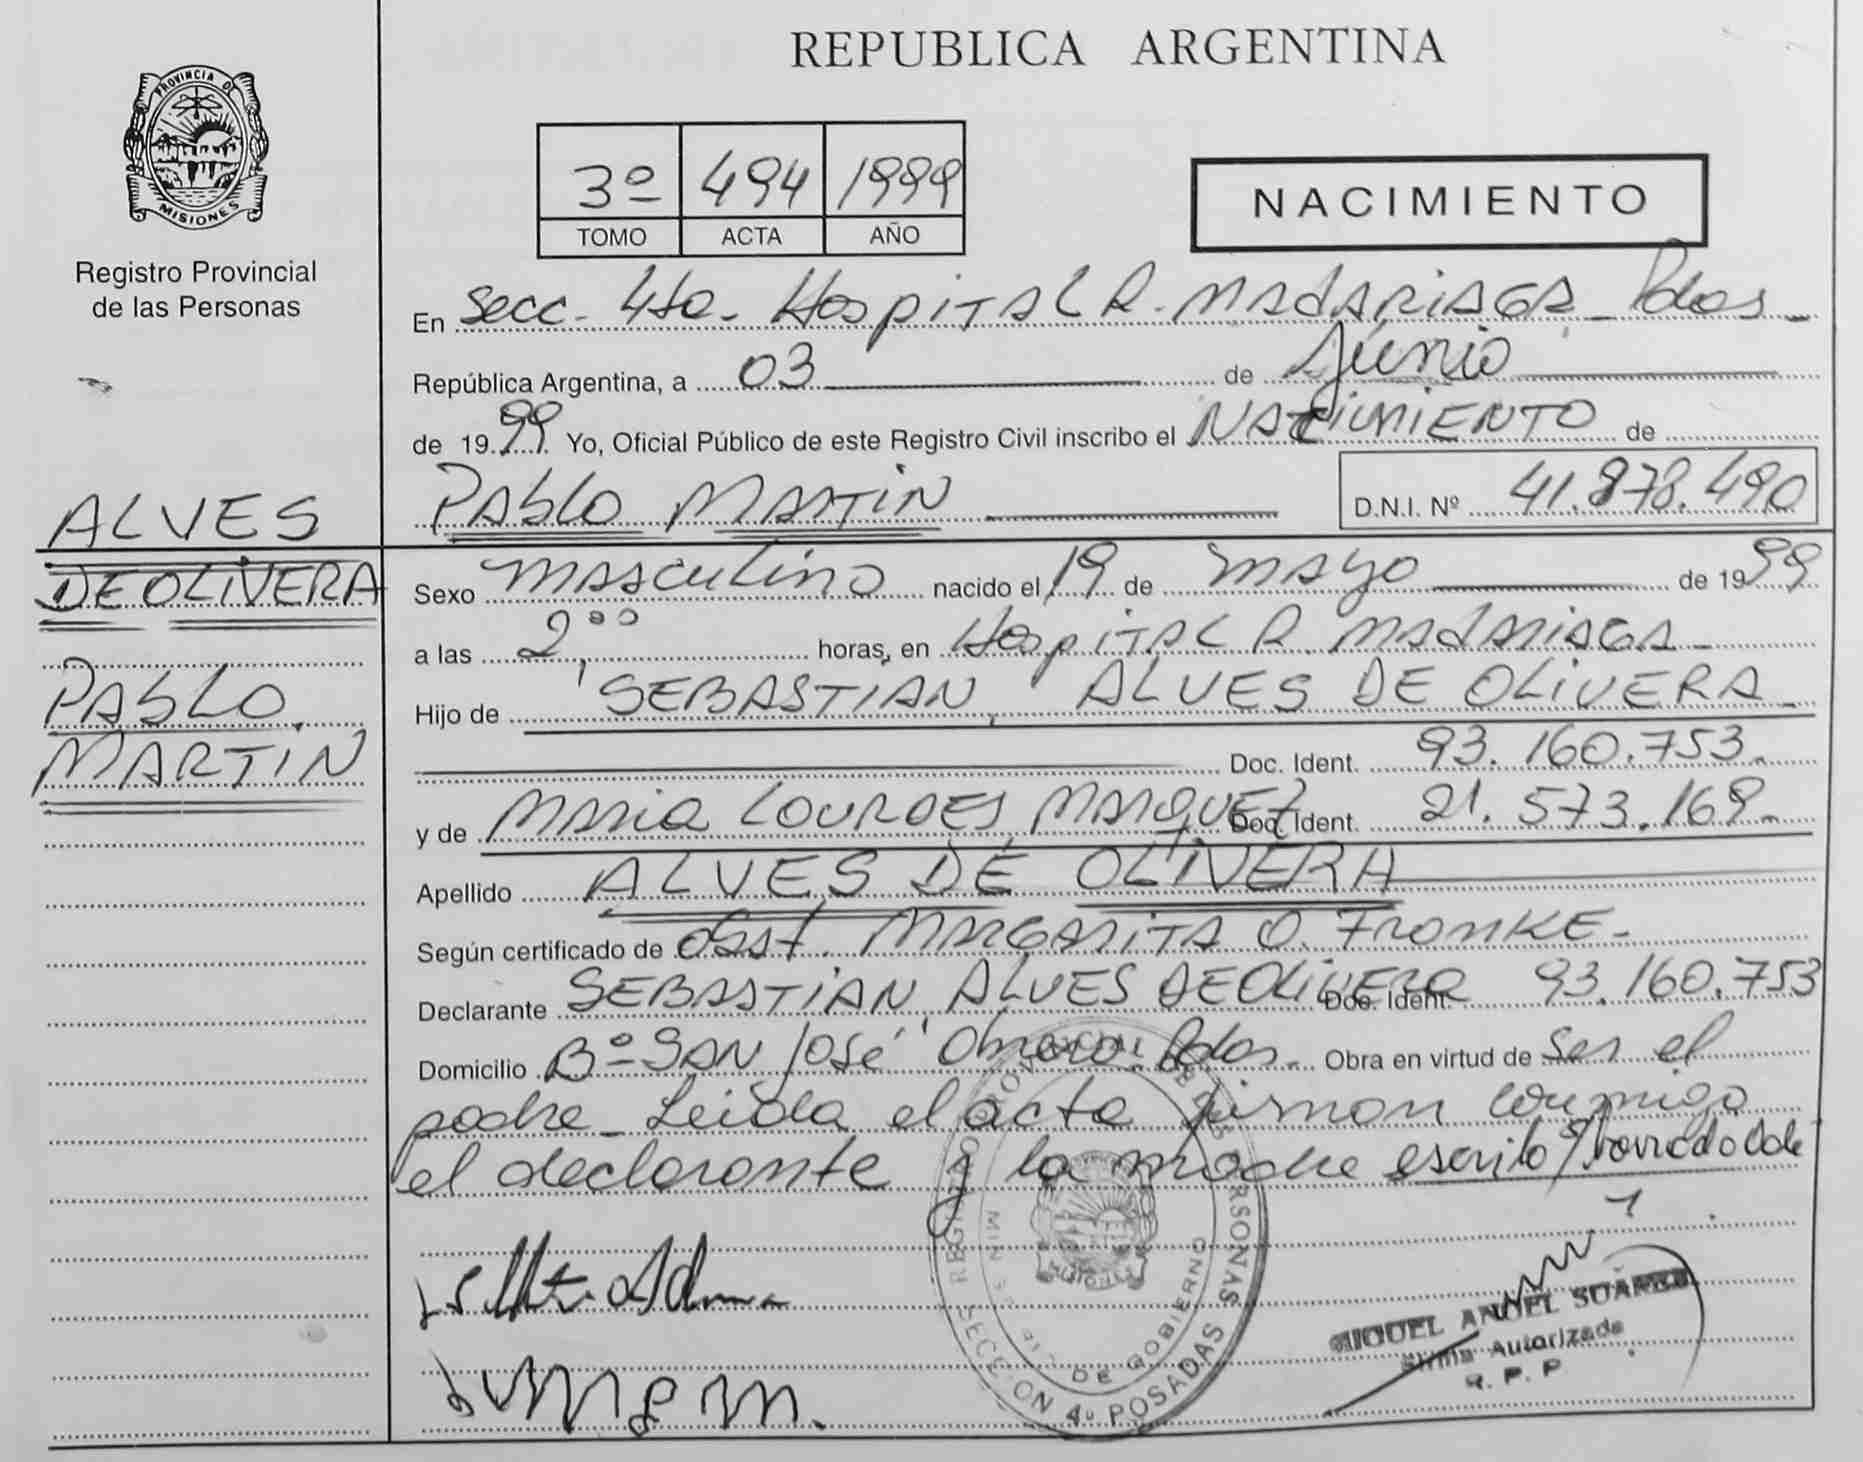 REPUBLICA ARGENTINA
PROVINCIA DE
MISIONES
Registro Provincial
de las Personas
3º 494 1999
TOMO ACTA AÑO
NACIMIENTO
En Secc. 4ta. Hospital R. Madariaga - Pdas -
República Argentina, a 03 de Junio
de 1999 Yo, Oficial Público de este Registro Civil inscribo el NACIMIENTO de
Pablo Martin D.N.I. Nº 41.878.490
ALVES
DE OLIVERA
PABLO
MARTIN
Sexo masculino nacido el 19 de mayo de 1999
a las 2,00 horas, en Hospital R. Madariaga -
Hijo de SEBASTIAN, ALVES DE OLIVERA -
Doc. Ident. 93.160.753.-
y de Maria Lourdes Marquez Doc. Ident. 21.573.169.-
Apellido ALVES DE OLIVERA
Según certificado de Obst. MARGARITA O. FROMKE -
Declarante SEBASTIAN, ALVES DE OLIVERA Doc. Ident. 93.160.753
Domicilio Bº SAN José Obrero. Pdas - Obra en virtud de ser el
padre - Leida el acta firman conmigo
el declarante y la madre escrito s/borrado
REGISTRO PROVINCIAL DE LAS PERSONAS
MINISTERIO DE GOBIERNO
MISIONES
SECCION 4º POSADAS
MIGUEL ANGEL SUAREZ
Firma Autorizada
R. P. P